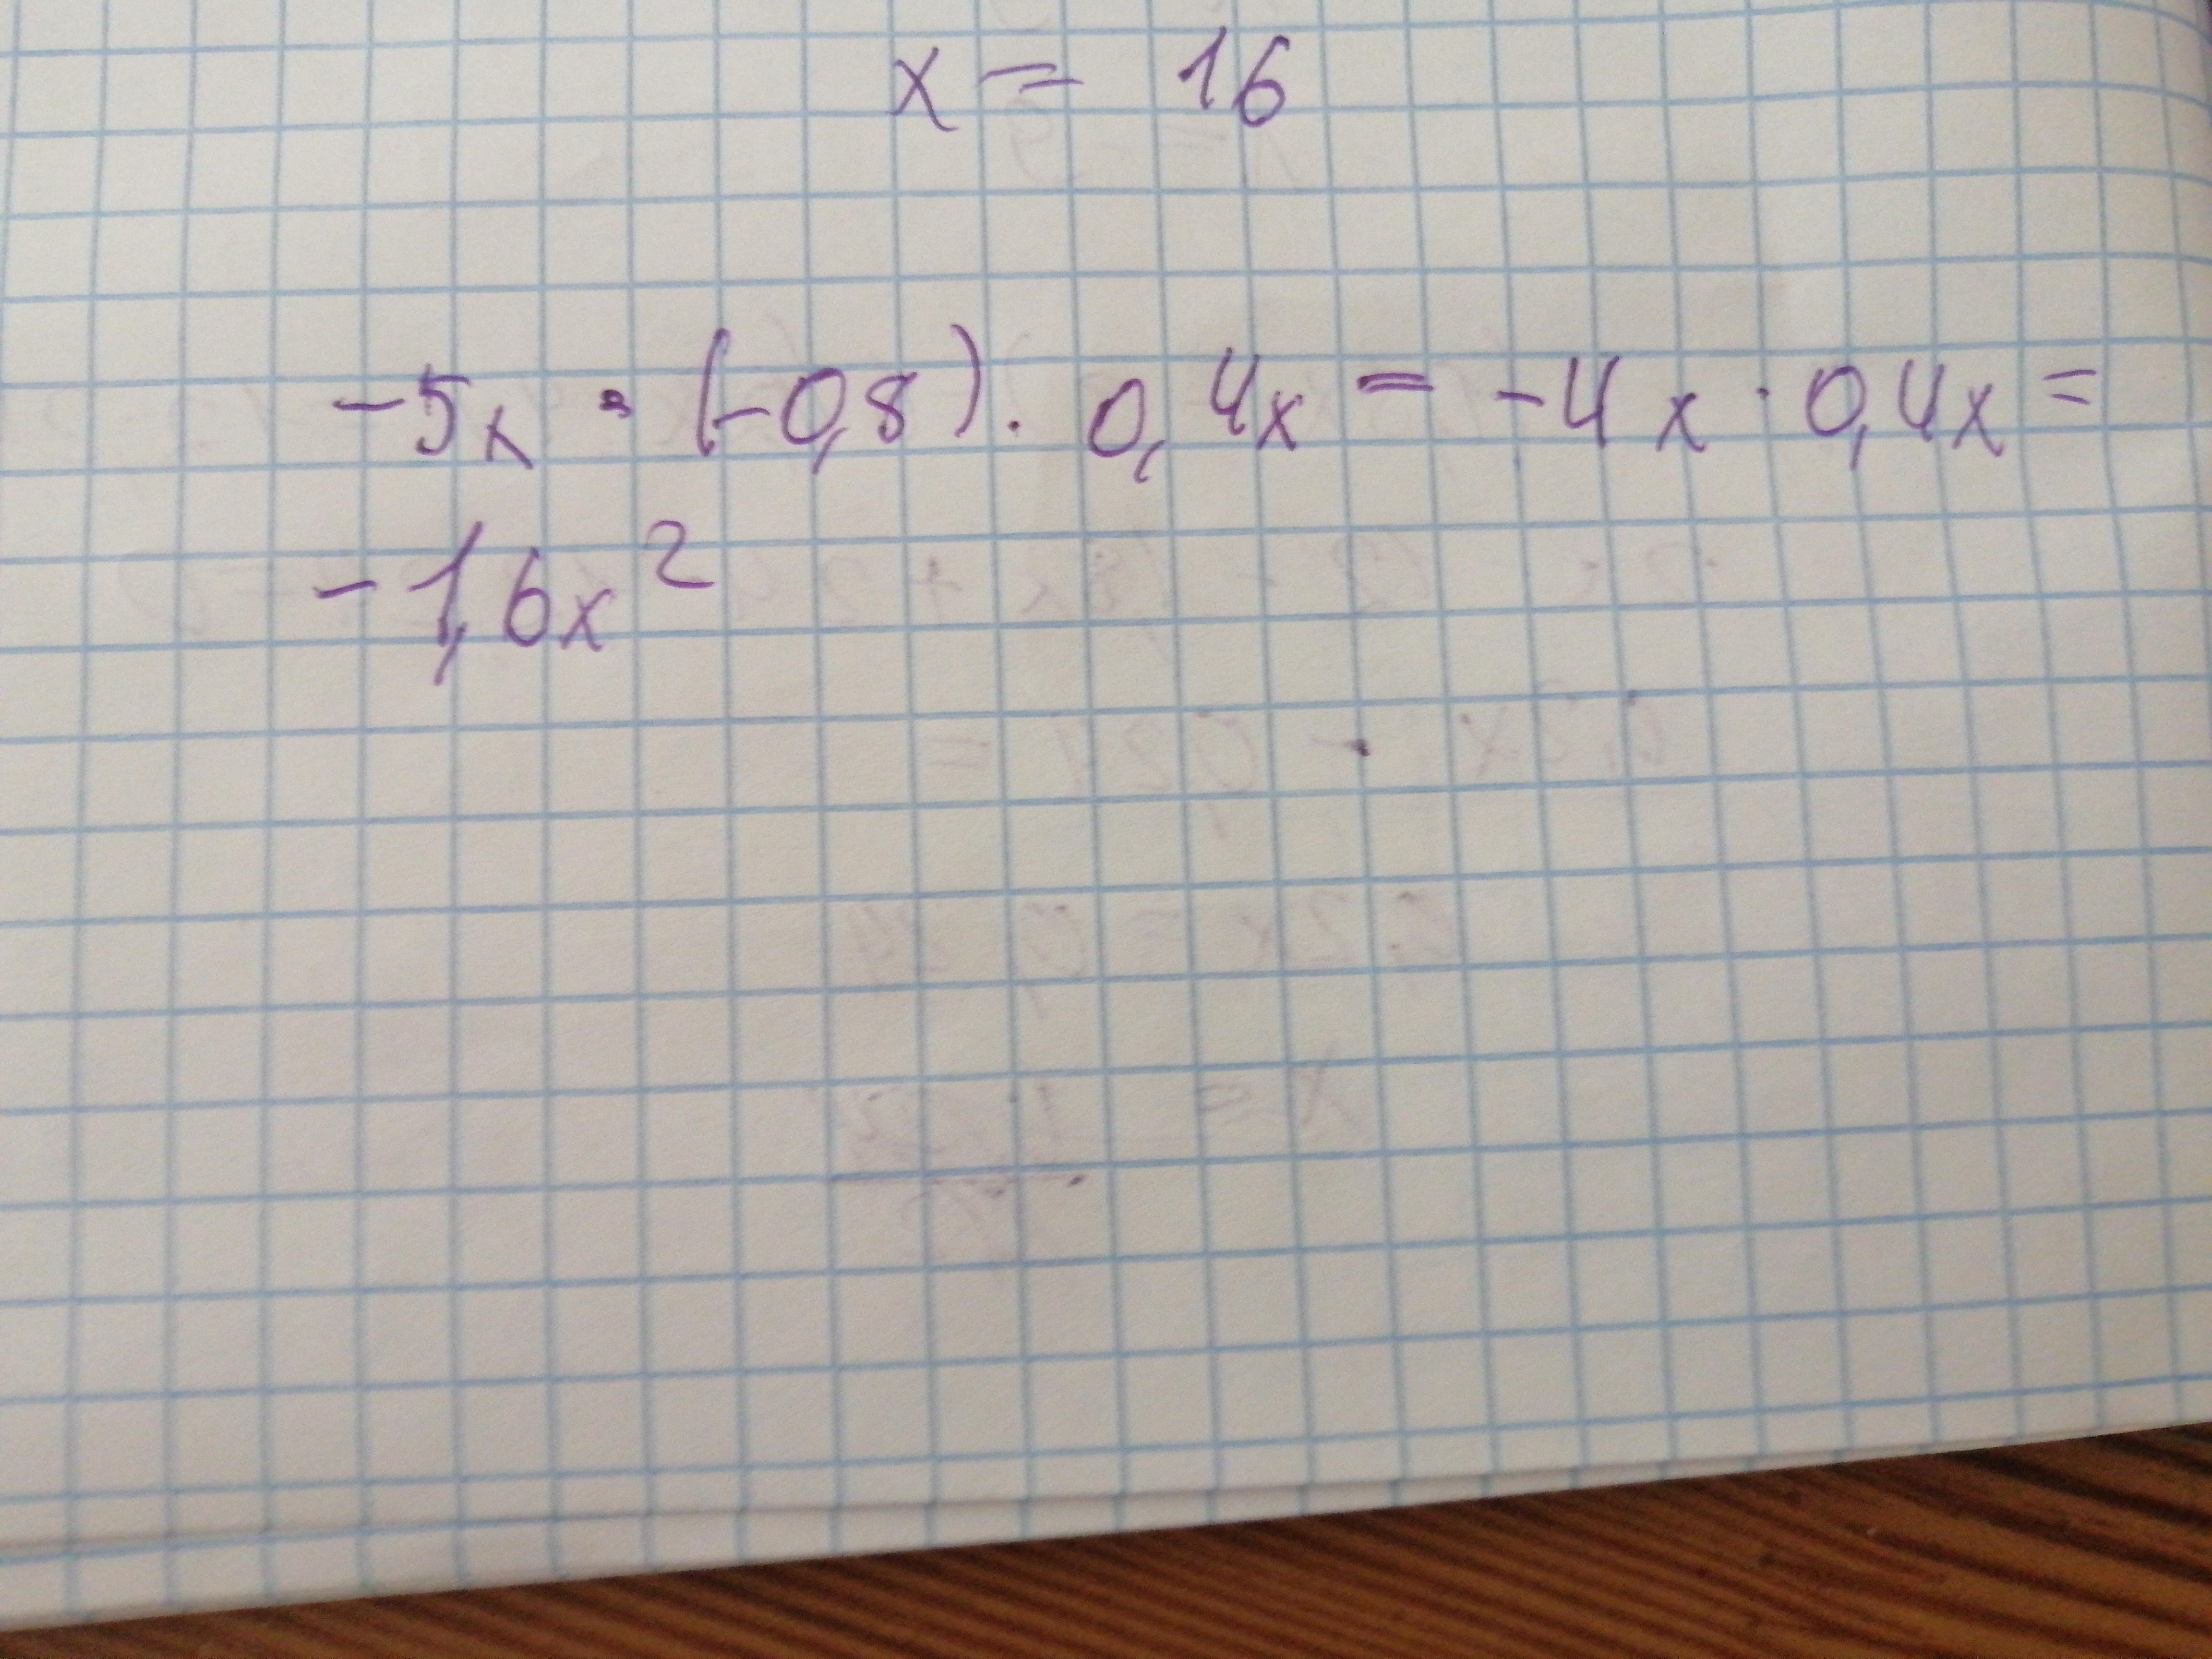 x = 16
-5x · (-0,8) · 0,4x = -4x · 0,4x =
-1,6x²